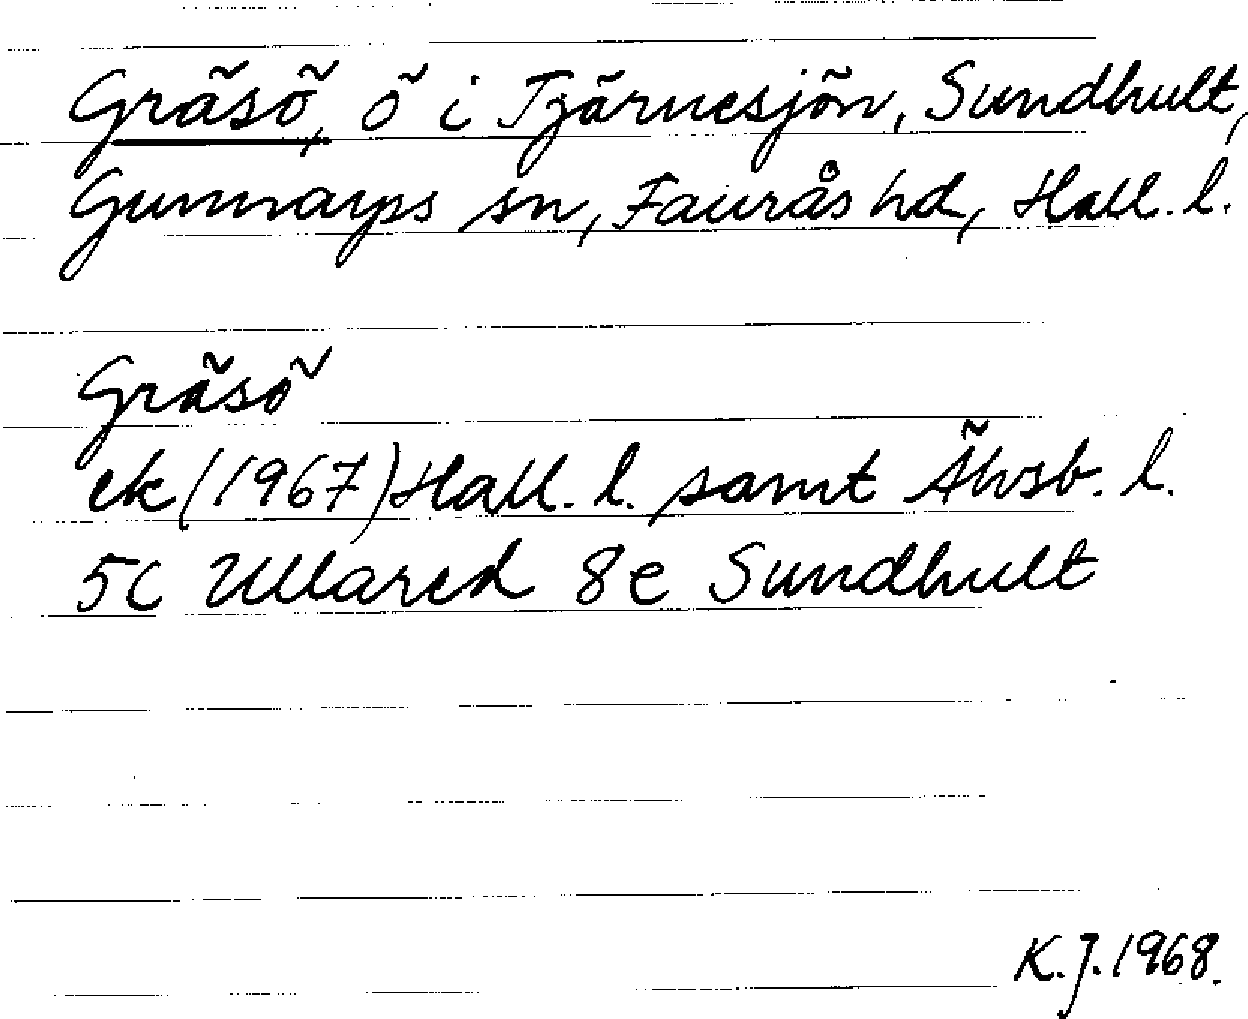 Gräsö, ö i Tjärnesjön, Sundhult,
Gunnarps sn, Faurås hd, Hall. l.
Gräsö
ek (1967) Hall. l. samt Älvsb. l.
5C Ullared 8e Sundhult
K.J. 1968.